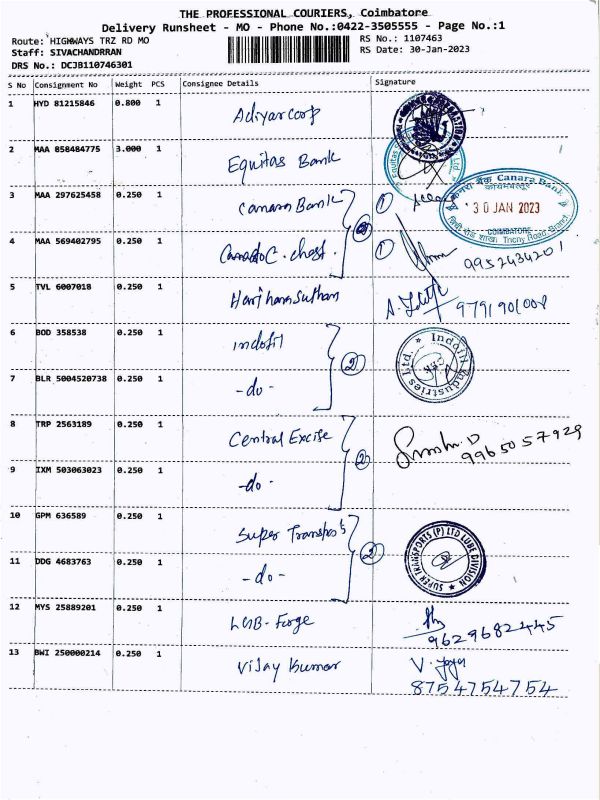 THE PROFESSIONAL COURIERS, Coimbatore
Delivery Runsheet - MO - Phone No.:0422-3505555 - Page No.:1
Route: HIGHWAYS TRZ RD MO
RS No.: 1107463
Staff: SIVACHANDRRAN
RS Date: 30-Jan-2023
DRS No.: DCJB110746301
S No Consignment No Weight PCS Consignee Details Signature
1 HYD 81215846 0.800 1 Adiyar corp
2 MAA 858484775 3.000 1 Equitas Bank
Equitas Ltd.
3 MAA 297625458 0.250 1 Canara Bank 1
केनरा बैंक Canara Bank
कोयम्बत्तूर
30 JAN 2023
COIMBATORE
Trichy Road Branch
4 MAA 569402795 0.250 1 1 9952434201
5 TVL 6007018 0.250 1 9791901008
6 BOD 358538 0.250 1 indofil 2
Indofil Industries Ltd.
7 BLR 5004520738 0.250 1 -do-
8 TRP 2563189 0.250 1 Central Excise 2 9965057929
9 IXM 503063023 0.250 1 -do-
10 GPM 636589 0.250 1 Super Transports 2
SUPER TRANSPORTS (P) LTD LUBE DIVISION
11 DDG 4683763 0.250 1 -do-
12 MYS 25889201 0.250 1 LGB-Forge 9629682445
13 BWI 250000214 0.250 1 Vijay Kumar 8754754754